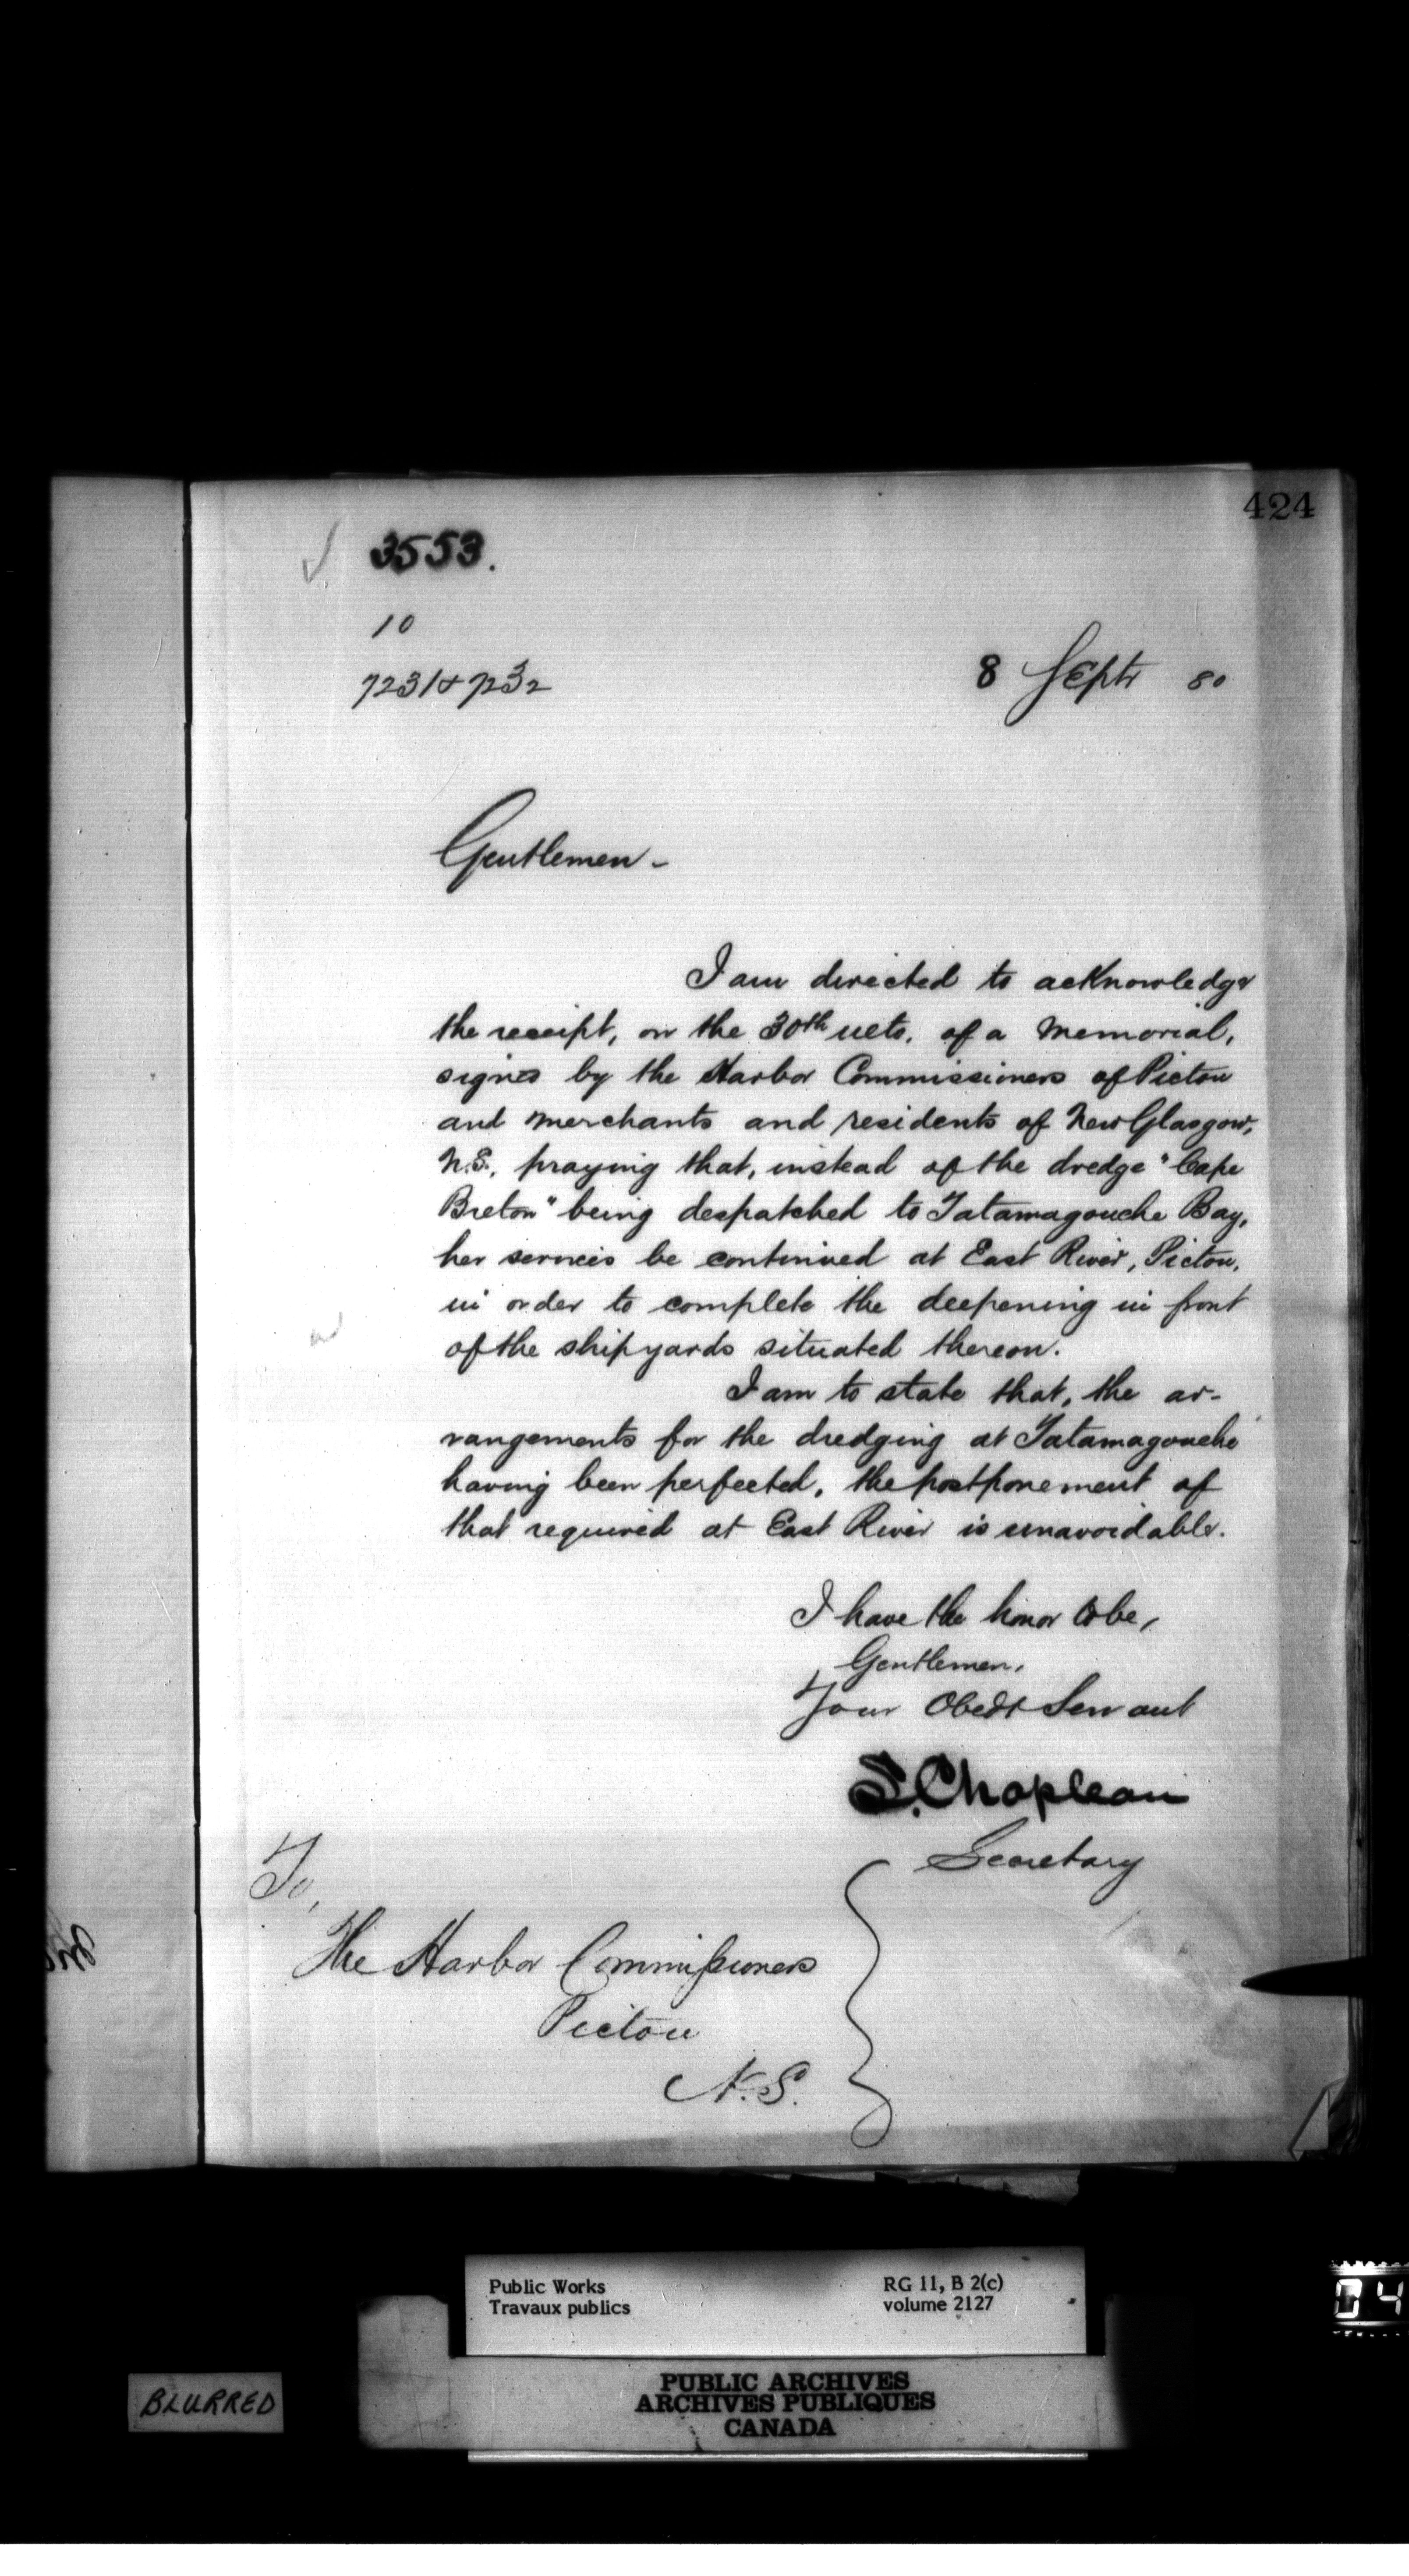 424
3553.
10
7231 & 7232
8 Septr 80
Gentlemen -
I am directed to acknowledge
the receipt, on the 30th ulto. of a Memorial,
signed by the Harbor Commissioners of Pictou
and merchants and residents of New Glasgow,
N.S., praying that, instead of the dredge "Cape
Breton" being despatched to Tatamagouche Bay,
her services be continued at East River, Pictou,
in order to complete the deepening in front
of the shipyards situated thereon.
I am to state that, the ar-
rangements for the dredging at Tatamagouche
having been perfected, the postponement of
that required at East River is unavoidable.
I have the honor to be,
Gentlemen,
Your Obedt Servant
S. Chapleau
Secretary
To,
The Harbor Commissioners
Pictou
N.S.
Public Works
Travaux publics
RG 11, B 2(c)
volume 2127
04
BLURRED
PUBLIC ARCHIVES
ARCHIVES PUBLIQUES
CANADA